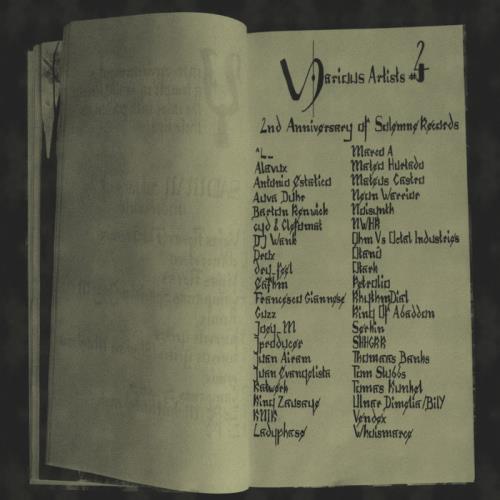 Various Artists #4
2nd Anniversary of Solemne Records
^L_
Alavux
Antonio Ostatico
Auva Duhr
Barton Renwick
cyd &
DJ Wank
Drax
dry_feel
Francesco Giannese
Guzz
Joey_M
Jproducer
Juan Airam
Juan Evangelista
Katwerk
King Zausage
KNJK
Ladyphase
Marco A
Mateo Hurtado
Mateus Castro
Neon Warrior
Noisynth
NWHR
Ohm Vs Octal Industries
Otanū
Otark
Petrolio
RhythmDial
Ring Of Abaddon
Serkin
SHHGRR
Thomaas Banks
Tom Stubbs
Tomas Kunkel
Ulnar Dimelia/BilY
Vendex
Whoismarco